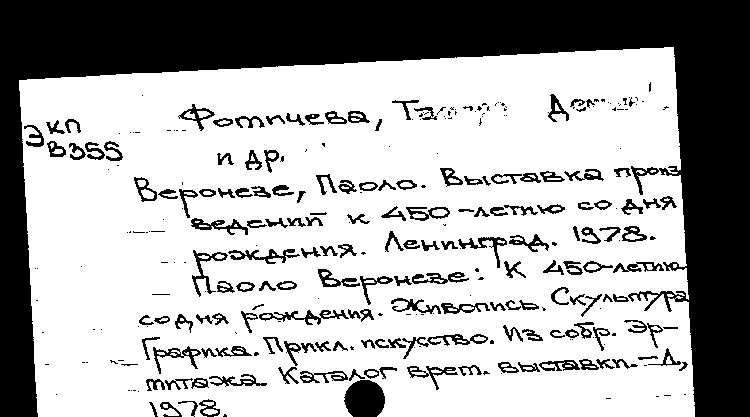 Фомичева, Тамара
Э КП
В355
и др.
Веронезе, Паоло. Выставка произ
ведений к 450-летию со дня
рождения. Ленинград. 1978.
Паоло Веронезе: К 450-летию
со дня рождения. Живопись. Скульптура
Графика. Прикл. искусство. Из собр. Эр-
митажа. Каталог врем. выставки. – Л.,
1978.